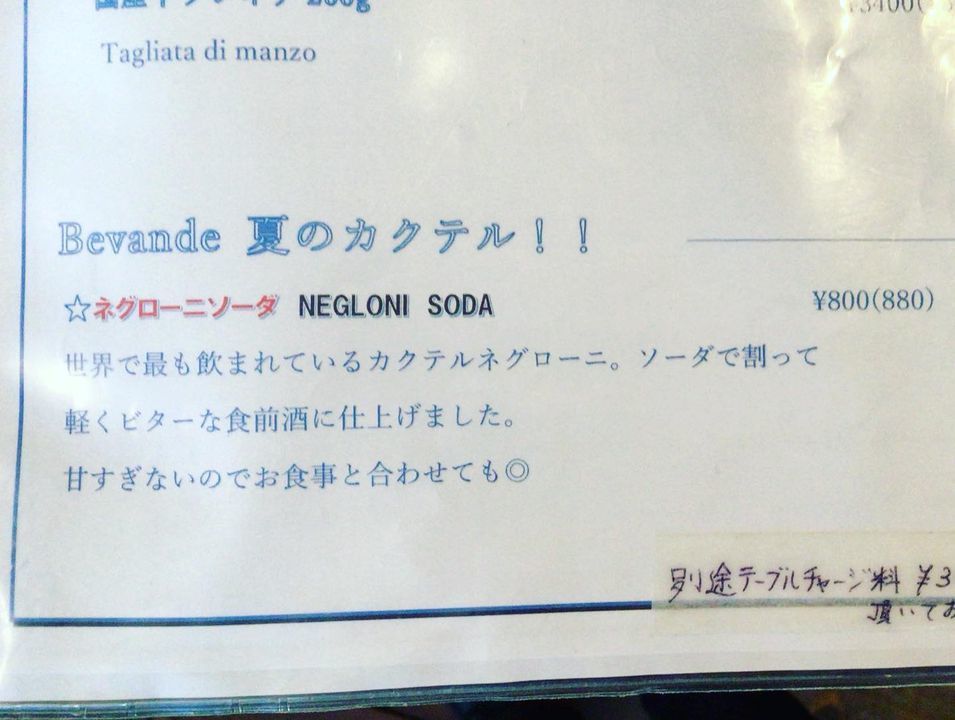 200g
Tagliata di manzo
Bevande 夏のカクテル！！
☆ネグローニソーダ NEGLONI SODA ¥800(880)
世界で最も飲まれているカクテルネグローニ。ソーダで割って
軽くビターな食前酒に仕上げました。
甘すぎないのでお食事と合わせても◎
別途テーブルチャージ料 ¥3
頂いてお